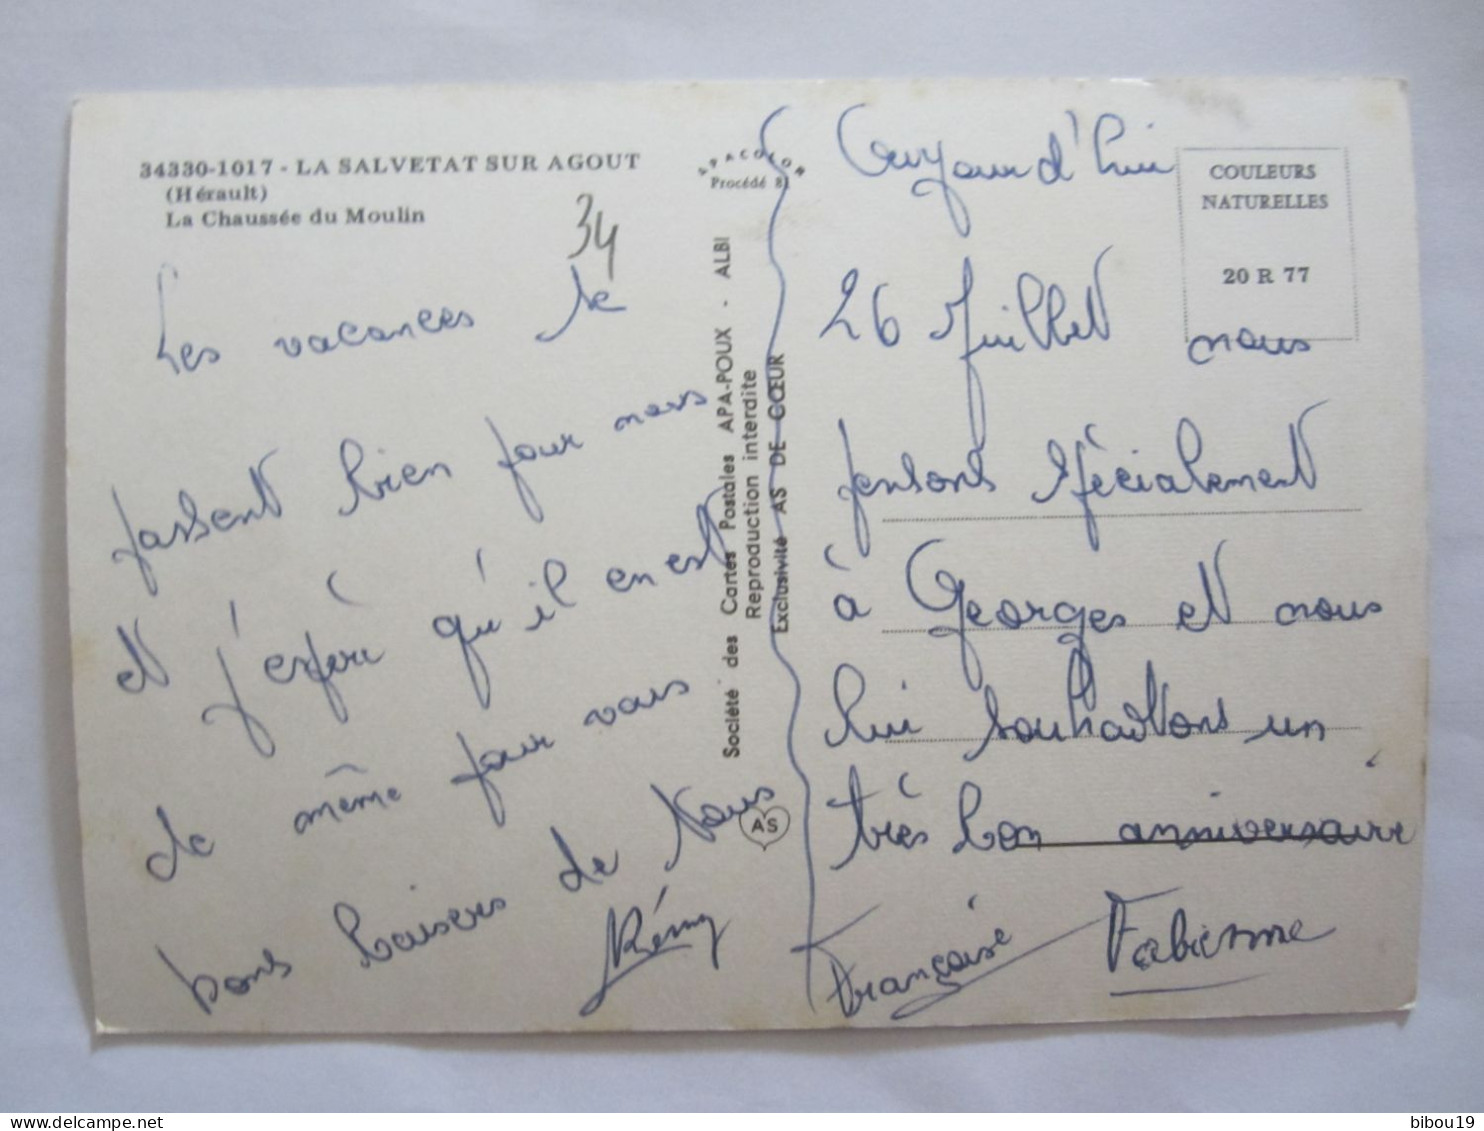 34330-1017 - LA SALVETAT SUR AGOUT
(Hérault)
La Chaussée du Moulin
34
Les vacances se
passent bien pour nous
et j'espère qu'il en est
de même pour vous
bons baisers de Nous
Rémy
APACOLOR
Procédé 81
Société des Cartes Postales APA-POUX - ALBI
Reproduction interdite
Exclusivité AS DE CŒUR
AS
COULEURS
NATURELLES
20 R 77
Aujourd'hui
26 Juillet nous
pensons spécialement
à Georges et nous
lui souhaitons un
très bon anniversaire
Françoise Fabienne
bibou19